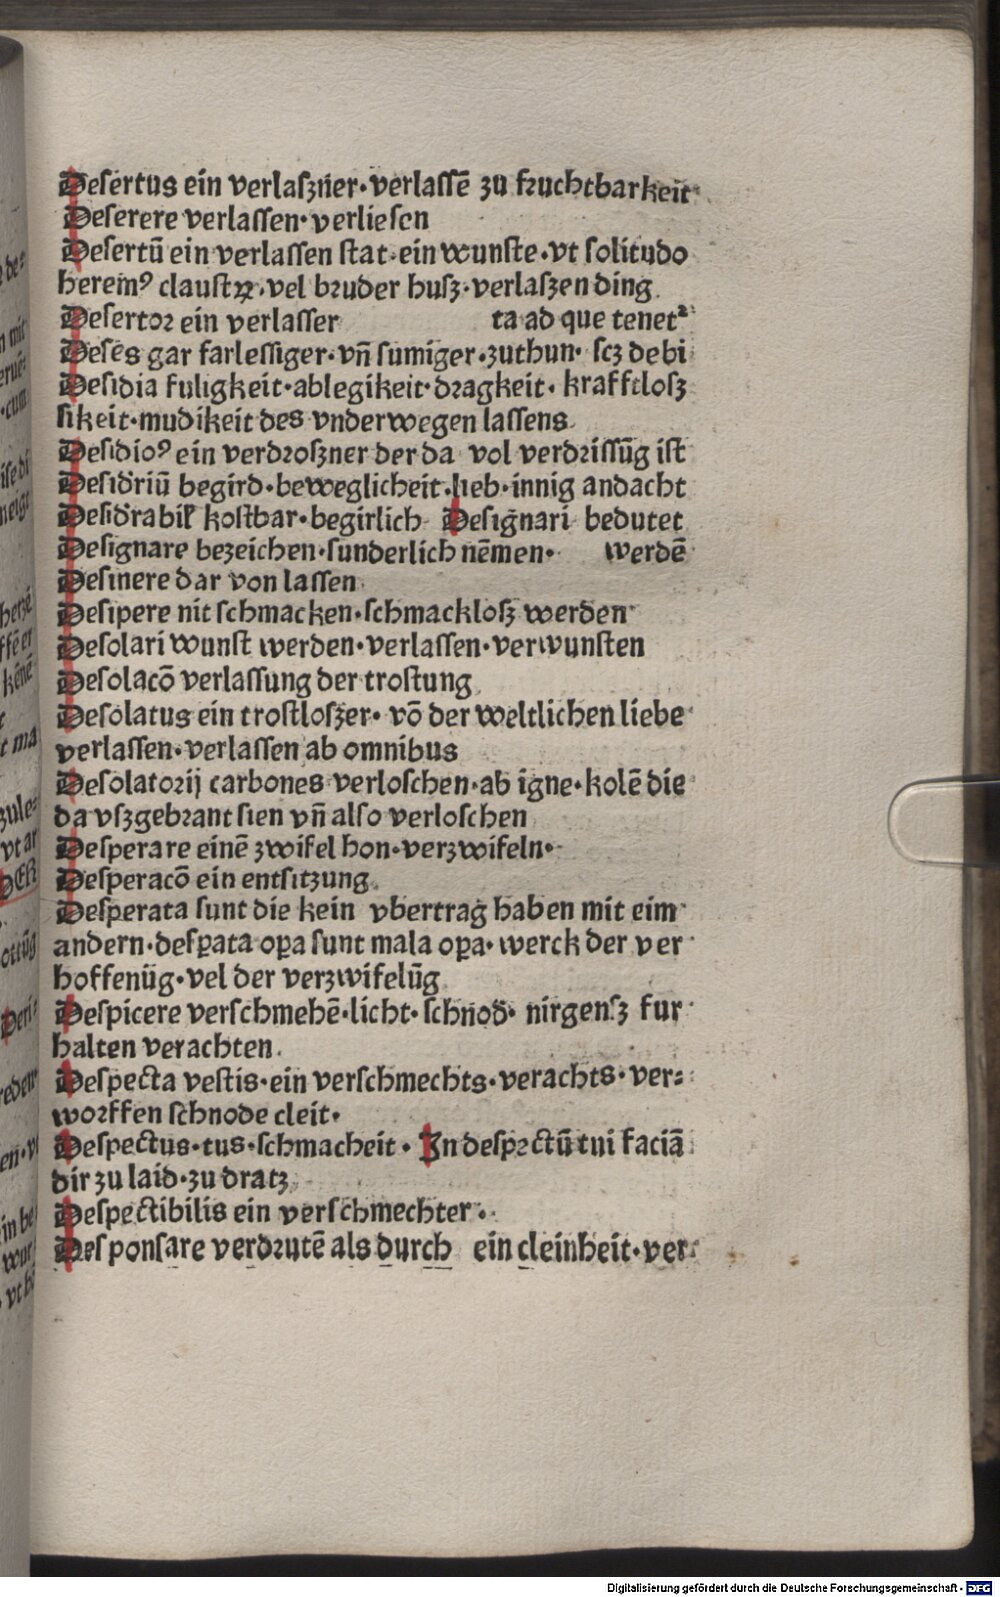 Desertus ein verlaſzner·verlaſſē zu fꝛuchtbarkeit
Deserere verlaſſen·verlieſen
Deſertū ein verlaſſen ſtat·ein wunſte·vt ſolitudo
heremꝰ clauſtꝝ·vel bꝛuder huſz·verlaſzen ding
Deſertoꝛ ein verlaſſer ta ad que tenetᷣ
Deſes gar farleſſiger·vn̄ ſumiger·zuthun· ſcz debi
Deſidia fuligkeit·ablegikeit·dꝛagkeit·krafftloſz
ſikeit·mudikeit des vnderwegen laſſens
Deſidioꝰ ein verdꝛoſzner der da vol verdꝛiſſūg iſt
Deſid̄riū begird·beweglicheit·lieb·innig andacht
Deſid̄rabil̕ koſtbar·begirlich Deſignari bedutet
Deſignare bezeichen·ſunderlich nēmen· werdē
Deſinere dar von laſſen
Deſipere nit ſchmacken·ſchmackloſz werden
Deſolari wunſt werden·verlaſſen·verwunſten
Deſolacō verlaſſung der troſtung
Deſolatus ein troſtloſzer·vō der weltlichen liebe
verlaſſen·verlaſſen ab omnibus
Deſolatoꝛij carbones verloſchen·ab igne·kolē die
da vſzgebꝛant ſien vn̄ alſo verloſchen
Deſperare einē zwifel hon·verzwifeln·
Deſperacō ein entſitzung
Deſperata ſunt die kein vbertrag haben mit eim
andern·deſꝑata oꝑa ſunt mala oꝑa·werck der ver
hoffenūg·vel der verzwifelūg
Deſpicere verſchmehē·licht·ſchnod̄·nirgenſz fur
halten verachten.
Deſpecta veſtis·ein verſchmechts·verachts·ver⸗
woꝛffen ſchnode cleit·
Deſpectus·tus·ſchmacheit·In deſpꝛctū tui faciā
dir zu laid·zu dratz
Deſpectibilis ein verſchmechter·
Deſponſare verdꝛutē als durch ein cleinheit·ver
Digitalisierung gefördert durch die Deutsche Forschungsgemeinschaft - DFG